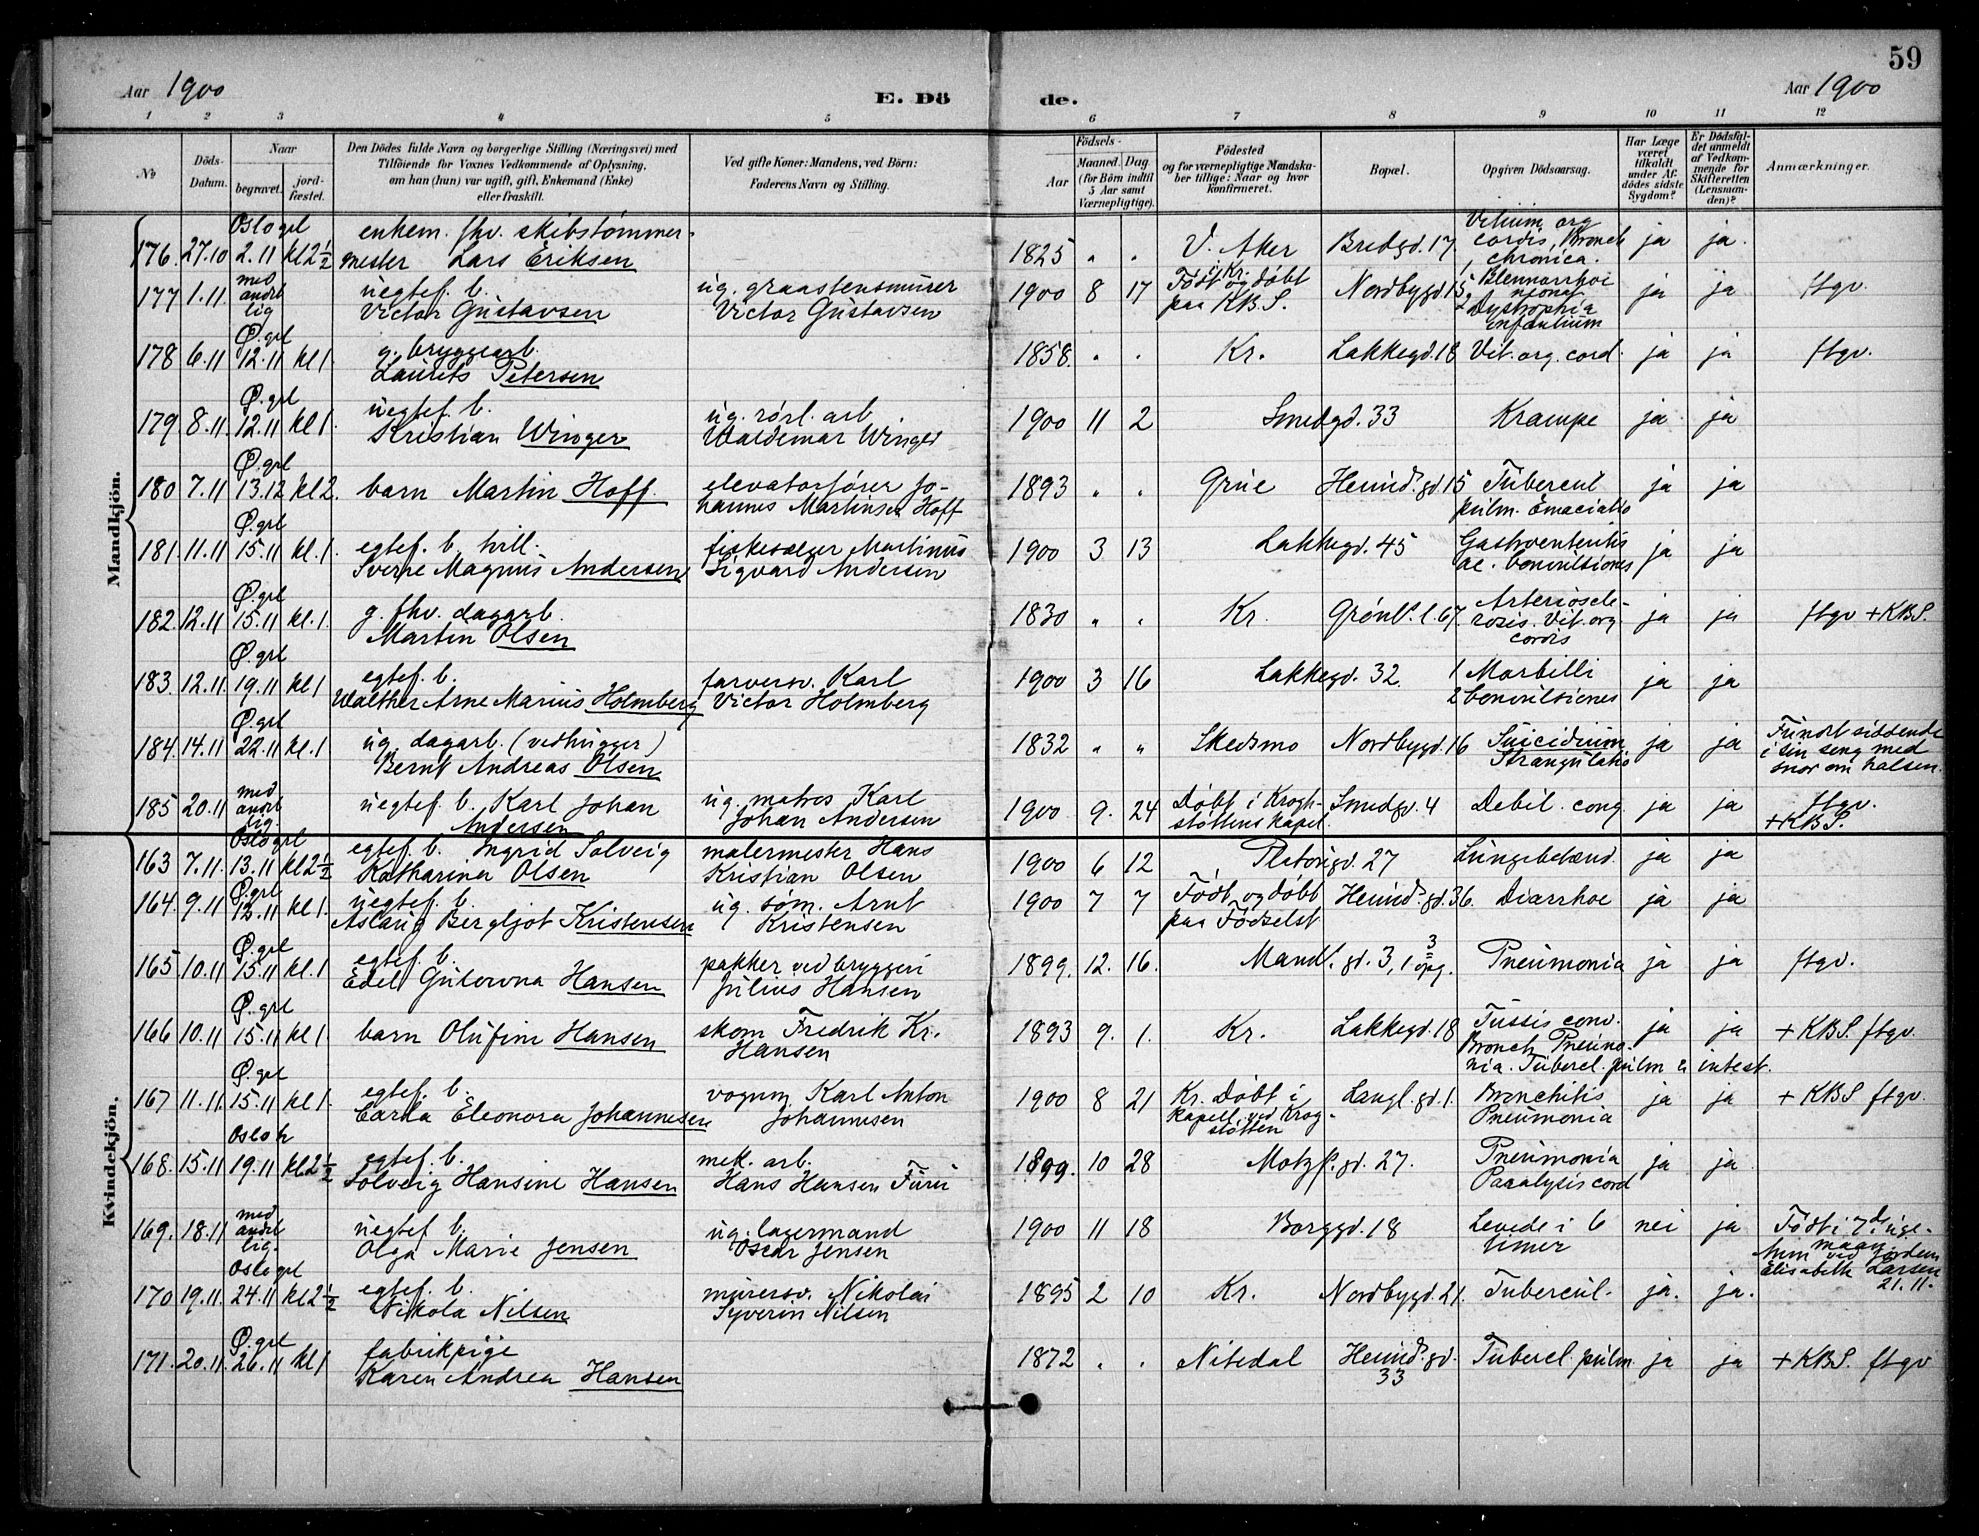 59
Aar 1900
E. Dö
de.
Aar 1900
1 2 3 4 5 6 7 8 9 10 11 12
No
Döds-
Datum.
Naar
begravet.
jord-
fæstet.
Den Dödes fulde Navn og borgerlige Stilling (Næringsvei) med
Tilföiende for Voxnes Vedkommende af Oplysning,
om han (hun) var ugift, gift, Enkemand (Enke)
eller fraskilt.
Ved gifte Koner: Mandens, ved Börn:
Faderens Navn og Stilling.
Födsels-
Aar
Maaned. Dag.
(for Börn indtil
5 Aar samt
Værnepligtige).
Födested
og for værnepligtige Mandska-
ber tillige: Naar og hvor
konfirmeret.
Bopæl.
Opgiven Dödsaarsag.
Har Læge
været
tilkaldt
under Af-
dödes sidste
Sygdom?
Er Dödsfal-
det anmeldt
af Vedkom-
mende for
Skifteretten
(Lensman-
den)?
Anmærkninger.
Mandkjön.
Oslo grl enkem. fhv. skibstømmer- Vitium org
176. 27.10 2.11 kl 2½ mester Lars Eriksen 1825 " " V. Aker Bredgd. 17 cordis, Bronch ja ja.
chronica.
med uegtef. b. ug. graastensmurer Født i Kr. og døbt 1 Blennorrhoe
177 1.11 andet lig Victor Gustavsen Victor Gustavsen 1900 8 17 paa KBS. Nordbygd. 15 neonat ja ja ftgv.
2 Dystrophia
infantium
Ø. grl g. bryggearb.
178 6.11 12.11 kl 1. Laurits Petersen 1858. " . Kr. Lakkegd. 18 Vit. org. cord. ja ja ftgv.
Ø. grl uegtef. b. ug. rørl. arb.
179. 8.11. 12.11 kl 1. Kristian Winger Waldemar Winger 1900 11 2 Smedgd. 33 Krampe ja ja
Ø. grl elevatorfører Jo-
180 7.11 13.12 kl 2. barn Martin Hoff. hannes Martinsen Hoff 1893 " . Grue Heimd. gd. 15 Tubercul ja ja
pulm. Emaciatio
Ø. grl egtef. b. tvill. fiskesælger Martinus Gastroenteritis
181. 11.11 15.11 kl. 1. Sverre Magnus Andersen Sigvard Andersen 1900 3 13 Lakkegd. 45 ac. Convulsiones ja ja
Ø. grl g. fhv. dagarb. Arterioscle-
182. 12.11 15.11 kl. 1. Martin Olsen 1830 " . Kr. Grønl. l. 67. rosis. Vit. org ja ja ftgv + KBS.
cordis
Ø. grl egtef. b. farversv. Karl 1 Morbilli
183. 12.11. 19.11 kl 1 Walther Arne Marius Holmberg Victor Holmberg 1900 3 16 Lakkegd. 32. 2 Convulsiones ja ja
Ø. grl ug. dagarb. (vedhugger) Suicidium. Fundet siddende
184. 14.11 22.11 kl. 1 Bernt Andreas Olsen 1832 " " Skedsmo Nordbygd. 16 Strangulatio ja ja i sin seng med
snor om halsen.
med uegtef. b. Karl Johan ug. matros Karl Døbt i Krogh- ftgv.
185 20.11 andet lig. Andersen Johan Andersen 1900 9. 24 støttens kapel. Smedgd. 4 Debil. cong. ja ja + KBS.
Kvindekjön.
Oslo grl egtef. b. Ingrid Solveig malermester Hans
163 7.11. 13.11 kl 2½ Katharina Olsen Kristian Olsen 1900 6 12 Platousgd. 27 Lungebetænd. ja ja
Ø. grl uegtef. b. ug. søm. Arnt Født og døbt
164. 9.11 12.11 kl 1. Aslaug Bergljot Kristensen Kristensen 1900 7 7 paa Fødselst. Heimd. gd. 36. Diarrhoe ja ja
Ø. grl egtef. b. pakker ved bryggeri
165 10.11 15.11 kl. 1 Edel Gutorma Hansen Julius Hansen 1899. 12. 16. Mandl. gd. 3, 1 3 opg. Pneumonia ja ja ftgv.
Ø. grl skom Fredrik Kr. Tussis conv.
166 10.11 15.11 kl 1. barn Olufine Hansen Hansen 1893 9. 1. Kr. Lakkegd. 18 Bronch. Pneumo- ja ja + KBS. ftgv.
nia. Tubercl. pulm & intest.
Ø. grl egtef. b. vognm. Karl Anton Kr. Døbt i Bronchitis
167 11.11. 15.11 kl 1. Carla Eleonora Johannesen Johannesen 1900 8 21 kapell. ved Krog- støtten Langl. gd. 1. Pneumonia ja ja + KBS ftgv.
Oslo k egtef. b. mek. arb. Pneumonia
168. 15.11 19.11 kl 2½ Solveig Hansine Hansen Hans Hansen Furu 1899. 10 28 Motzf. gd. 27. Paralysis cord ja ja
med uegtef. b. ug. lagermand Levede i 6 Født i 7de uge-
169. 18.11 andet lig. Olga Marie Jensen Oscar Jensen 1900 11 18 Borggd. 18 timer nei ja maan. ved jordem
Elisabeth Larsen
21.11.
Oslo grl egtef. b. murersv. Nikolai
170 19.11. 24.11 kl 2½ Nikola Nilsen Syverin Nilsen 1895 2 10 Kr. Nordbygd. 21. Tubercul. ja. ja.
Ø. grl fabrikpige
171. 20.11. 26.11 kl 1 Karen Andrea Hansen 1872 " . Nitedal Heimd. gd. 33 Tubercl. pulm. ja ja + KBS. ftgv